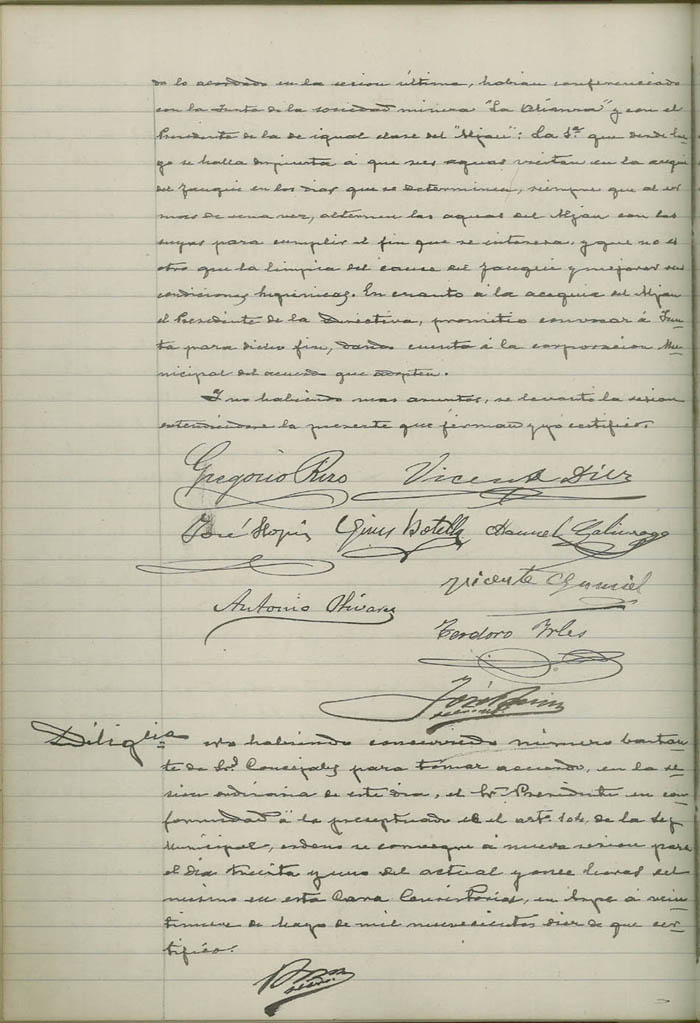 do lo acordado en la sesion última, habian conferenciado
con la Junta de la sociedad minera "La Alianza" y con el
Presidente de la de igual clase del "Mjau": La 1ª que desde lue-
go se halla dispuesta á que sus aguas viertan en la acequia
del Zauque en los dias que se determinen, siempre que al
mes de una vez, alternen las aguas del Mjau con las
suyas para cumplir el fin que se interesa, y que no es
otro que la limpieza del cauce del Zauque y mejorar sus
condiciones higienicas. En cuanto á la acequia del Mjau
el Presidente de la Directiva, prometió convocar á Jun-
ta para dicho fin, dando cuenta á la corporacion Mu-
nicipal del acuerdo que adopten.
Y no habiendo mas asuntos, se levantó la sesion
extendiendose la presente que firman y yo certifico.
Gregorio Rizo Vicente Diez
José Ginés Botella Manuel
Antonio Olivares Vicente
Teodoro Irles
José
Diliga no habiendo concurrido número bastan-
te de Sres Concejales para tomar acuerdo, en la se-
sion ordinaria de este dia, el Sr. Presidente en con-
formidad á lo preceptuado en el artº 104, de la Ley
Municipal, ordenó se convoque á nueva sesion para
el dia treinta y uno del actual y once horas del
mismo en esta Casa Consistorial, en Aspe á vein-
tinueve de Mayo de mil nuevecientos diez de que cer-
tifico.